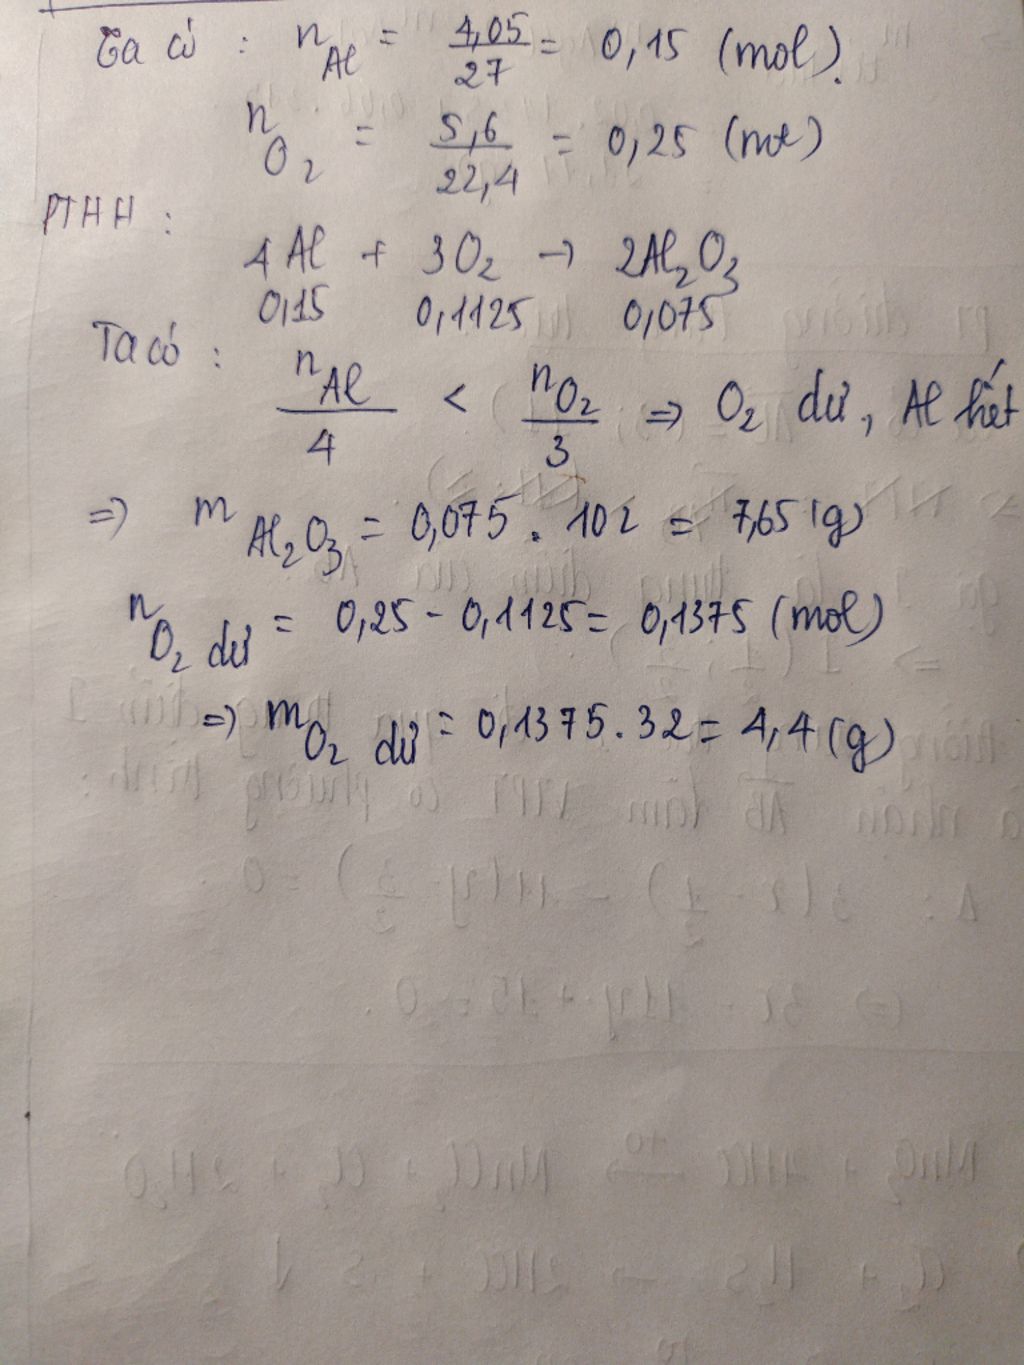 Ta có : nAl = 4,05/27 = 0,15 (mol).
nO2 = 5,6/22,4 = 0,25 (mol)
PTHH :
4Al + 3O2 → 2Al2O3
0,15 0,1125 0,075
Ta có : nAl/4 < nO2/3 ⇒ O2 dư, Al hết
⇒ mAl2O3 = 0,075 . 102 = 7,65 (g)
nO2 dư = 0,25 - 0,1125 = 0,1375 (mol)
⇒ mO2 dư = 0,1375 . 32 = 4,4 (g)